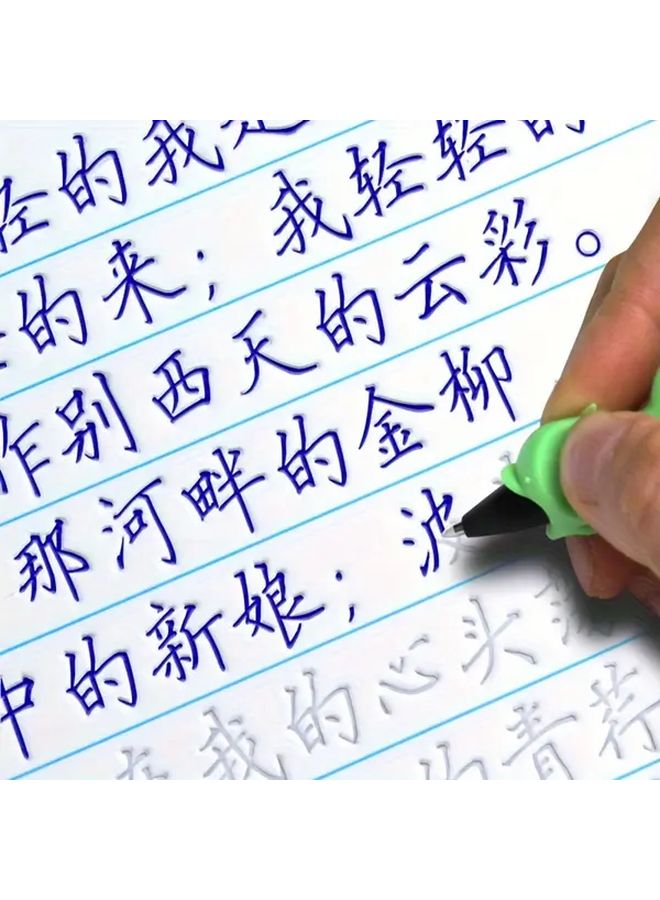 轻的我走
的来；我轻轻的
作别西天的云彩。
那河畔的金柳
中的新娘；波
在我的心头荡
的青荇